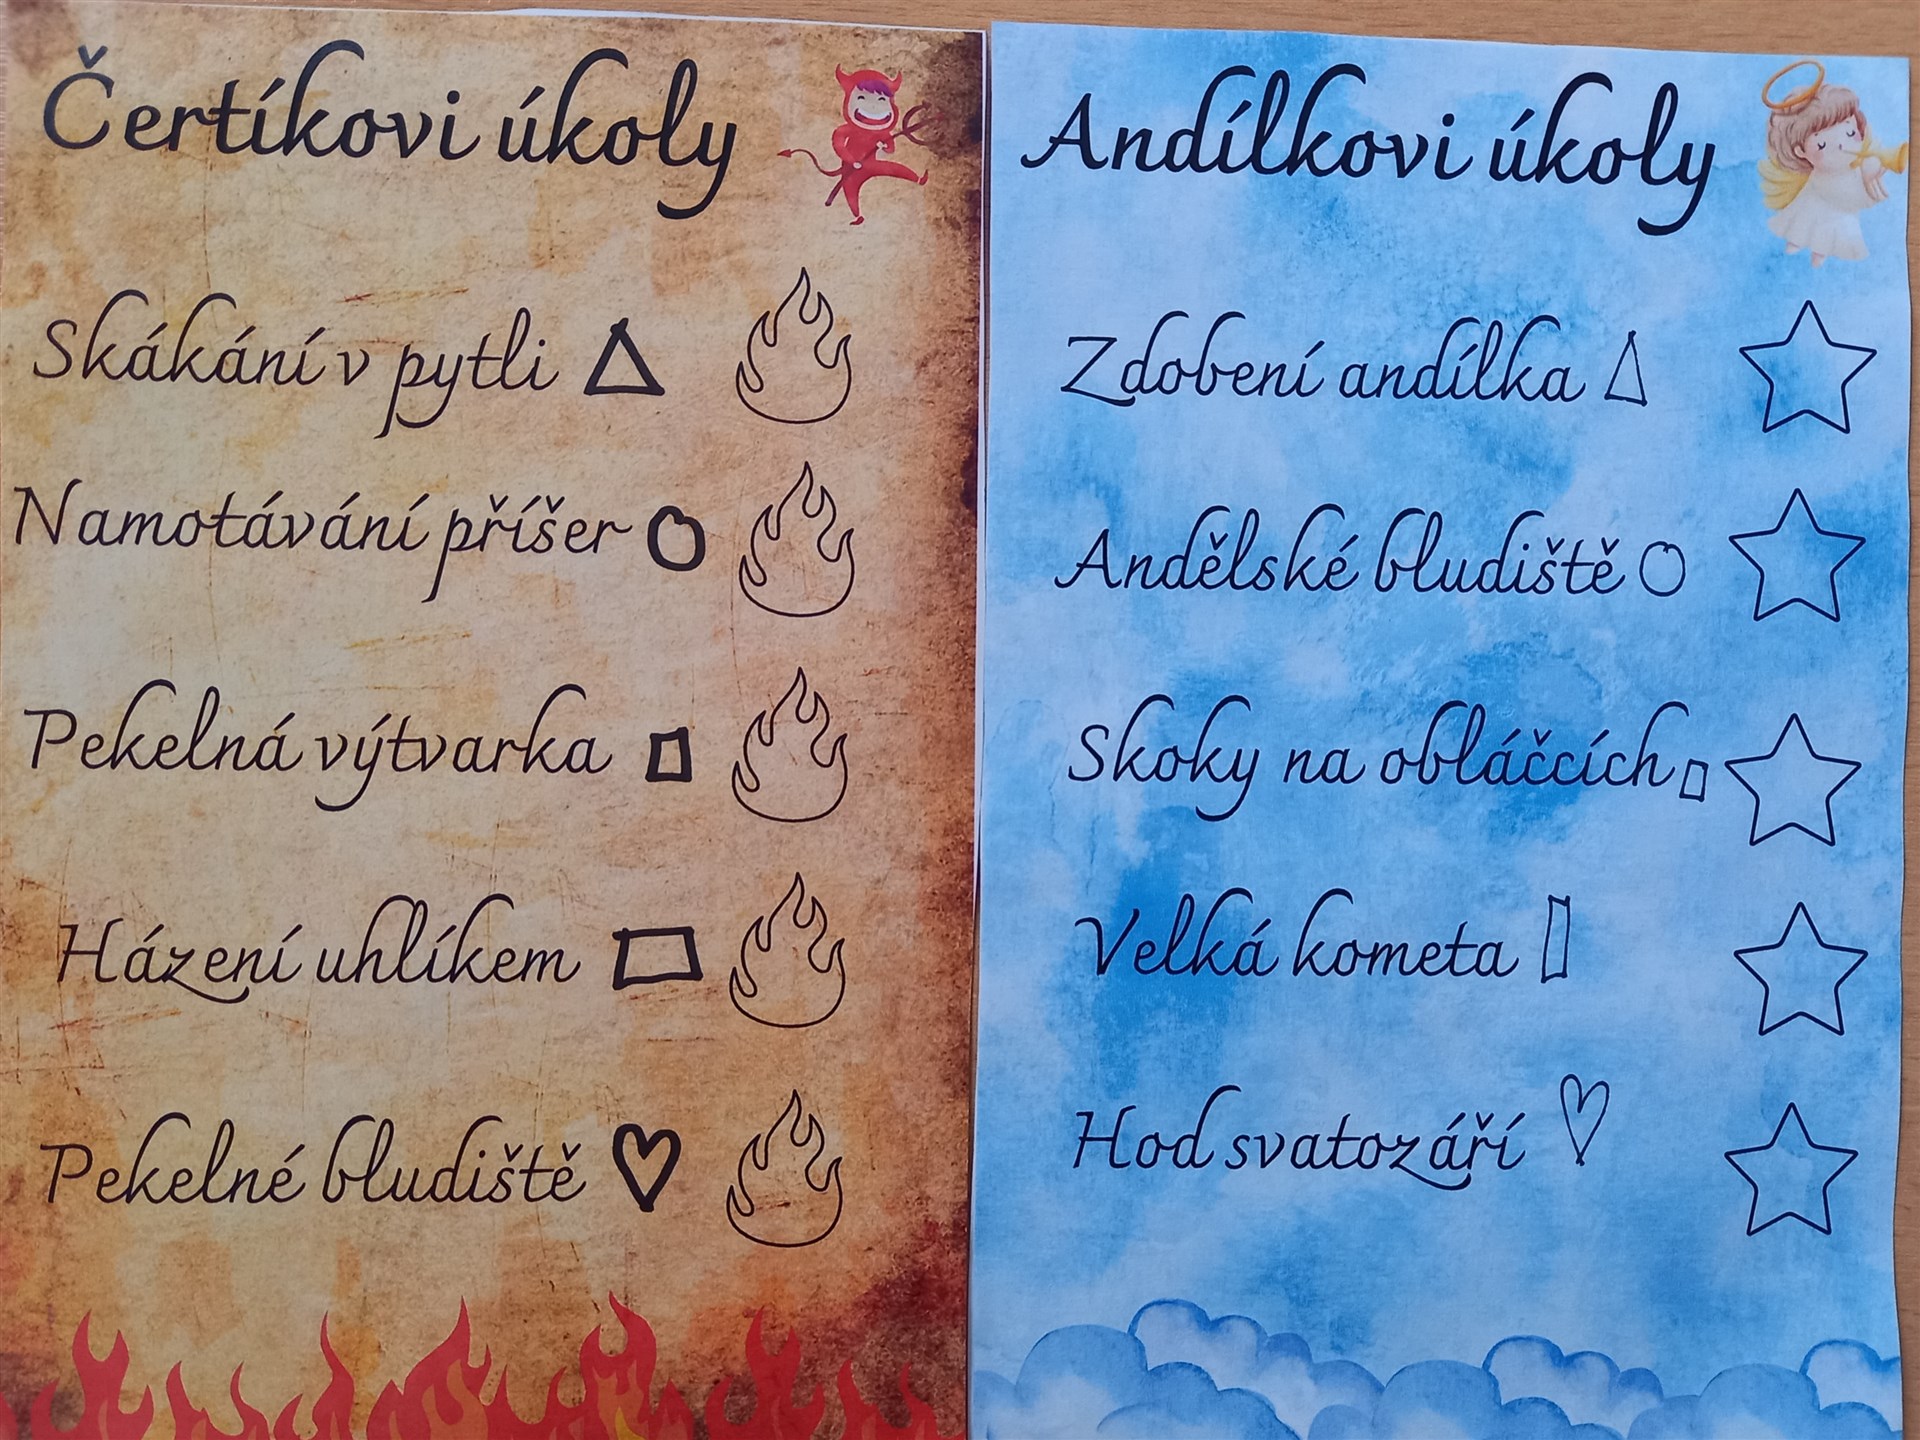 Čertíkovi úkoly
Skákání v pytli
Namotávání příšer
Pekelná výtvarka
Házení uhlíkem
Pekelné bludiště
Andílkovi úkoly
Zdobení andílka
Andělské bludiště
Skoky na obláčcích
Velká kometa
Hod svatozáří